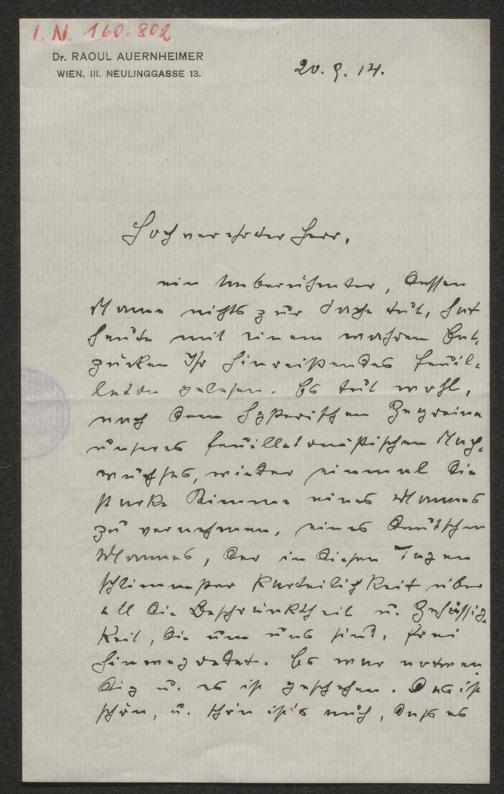 I. N. 160.802
Dr. RAOUL AUERNHEIMER
WIEN, III. NEULINGGASSE 13.
20. 9. 14.
Hochverehrter Herr,
ein Unberühmter, dessen
Name nichts zur Sache tut, hat
heute mit einem wahren Ent-
zücken Ihr hinreißendes Feuil-
leton gelesen. Es tut wohl,
nach dem hysterischen Gegreine
unseres feuilletonistischen Nach-
wuchses, wieder einmal die
starke Stimme eines Mannes
zu vernehmen, eines deutschen
Mannes, der in diesen Tagen
schlimmster Parteilichkeit über
all die Beschränktheit u. Gehässig-
keit, die um uns sind, frei
hinwegredet. Es war notwen
dig u. es ist geschehen. Das ist
schön, u. schön ist's auch, daß es